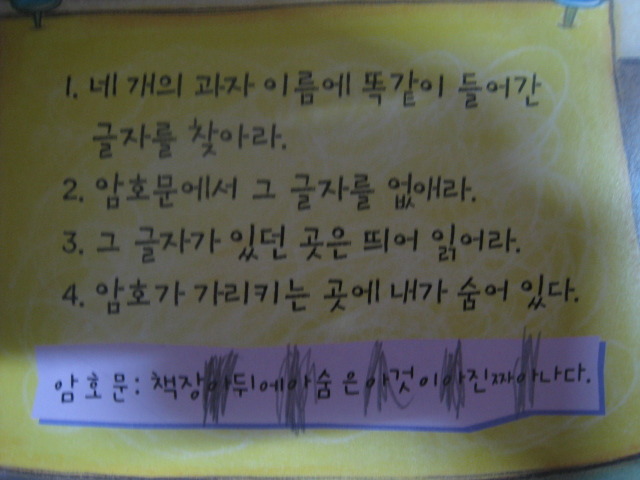 1. 네 개의 과자 이름에 똑같이 들어간
글자를 찾아라.
2. 암호문에서 그 글자를 없애라.
3. 그 글자가 있던 곳은 띄어 읽어라.
4. 암호가 가리키는 곳에 내가 숨어 있다.
암호문: 책장아뒤에아숨은아것이아진짜아나다.